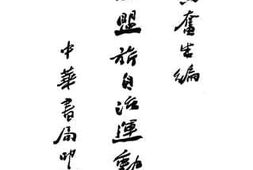 奮生編
盟旂自治運動
中華書局印